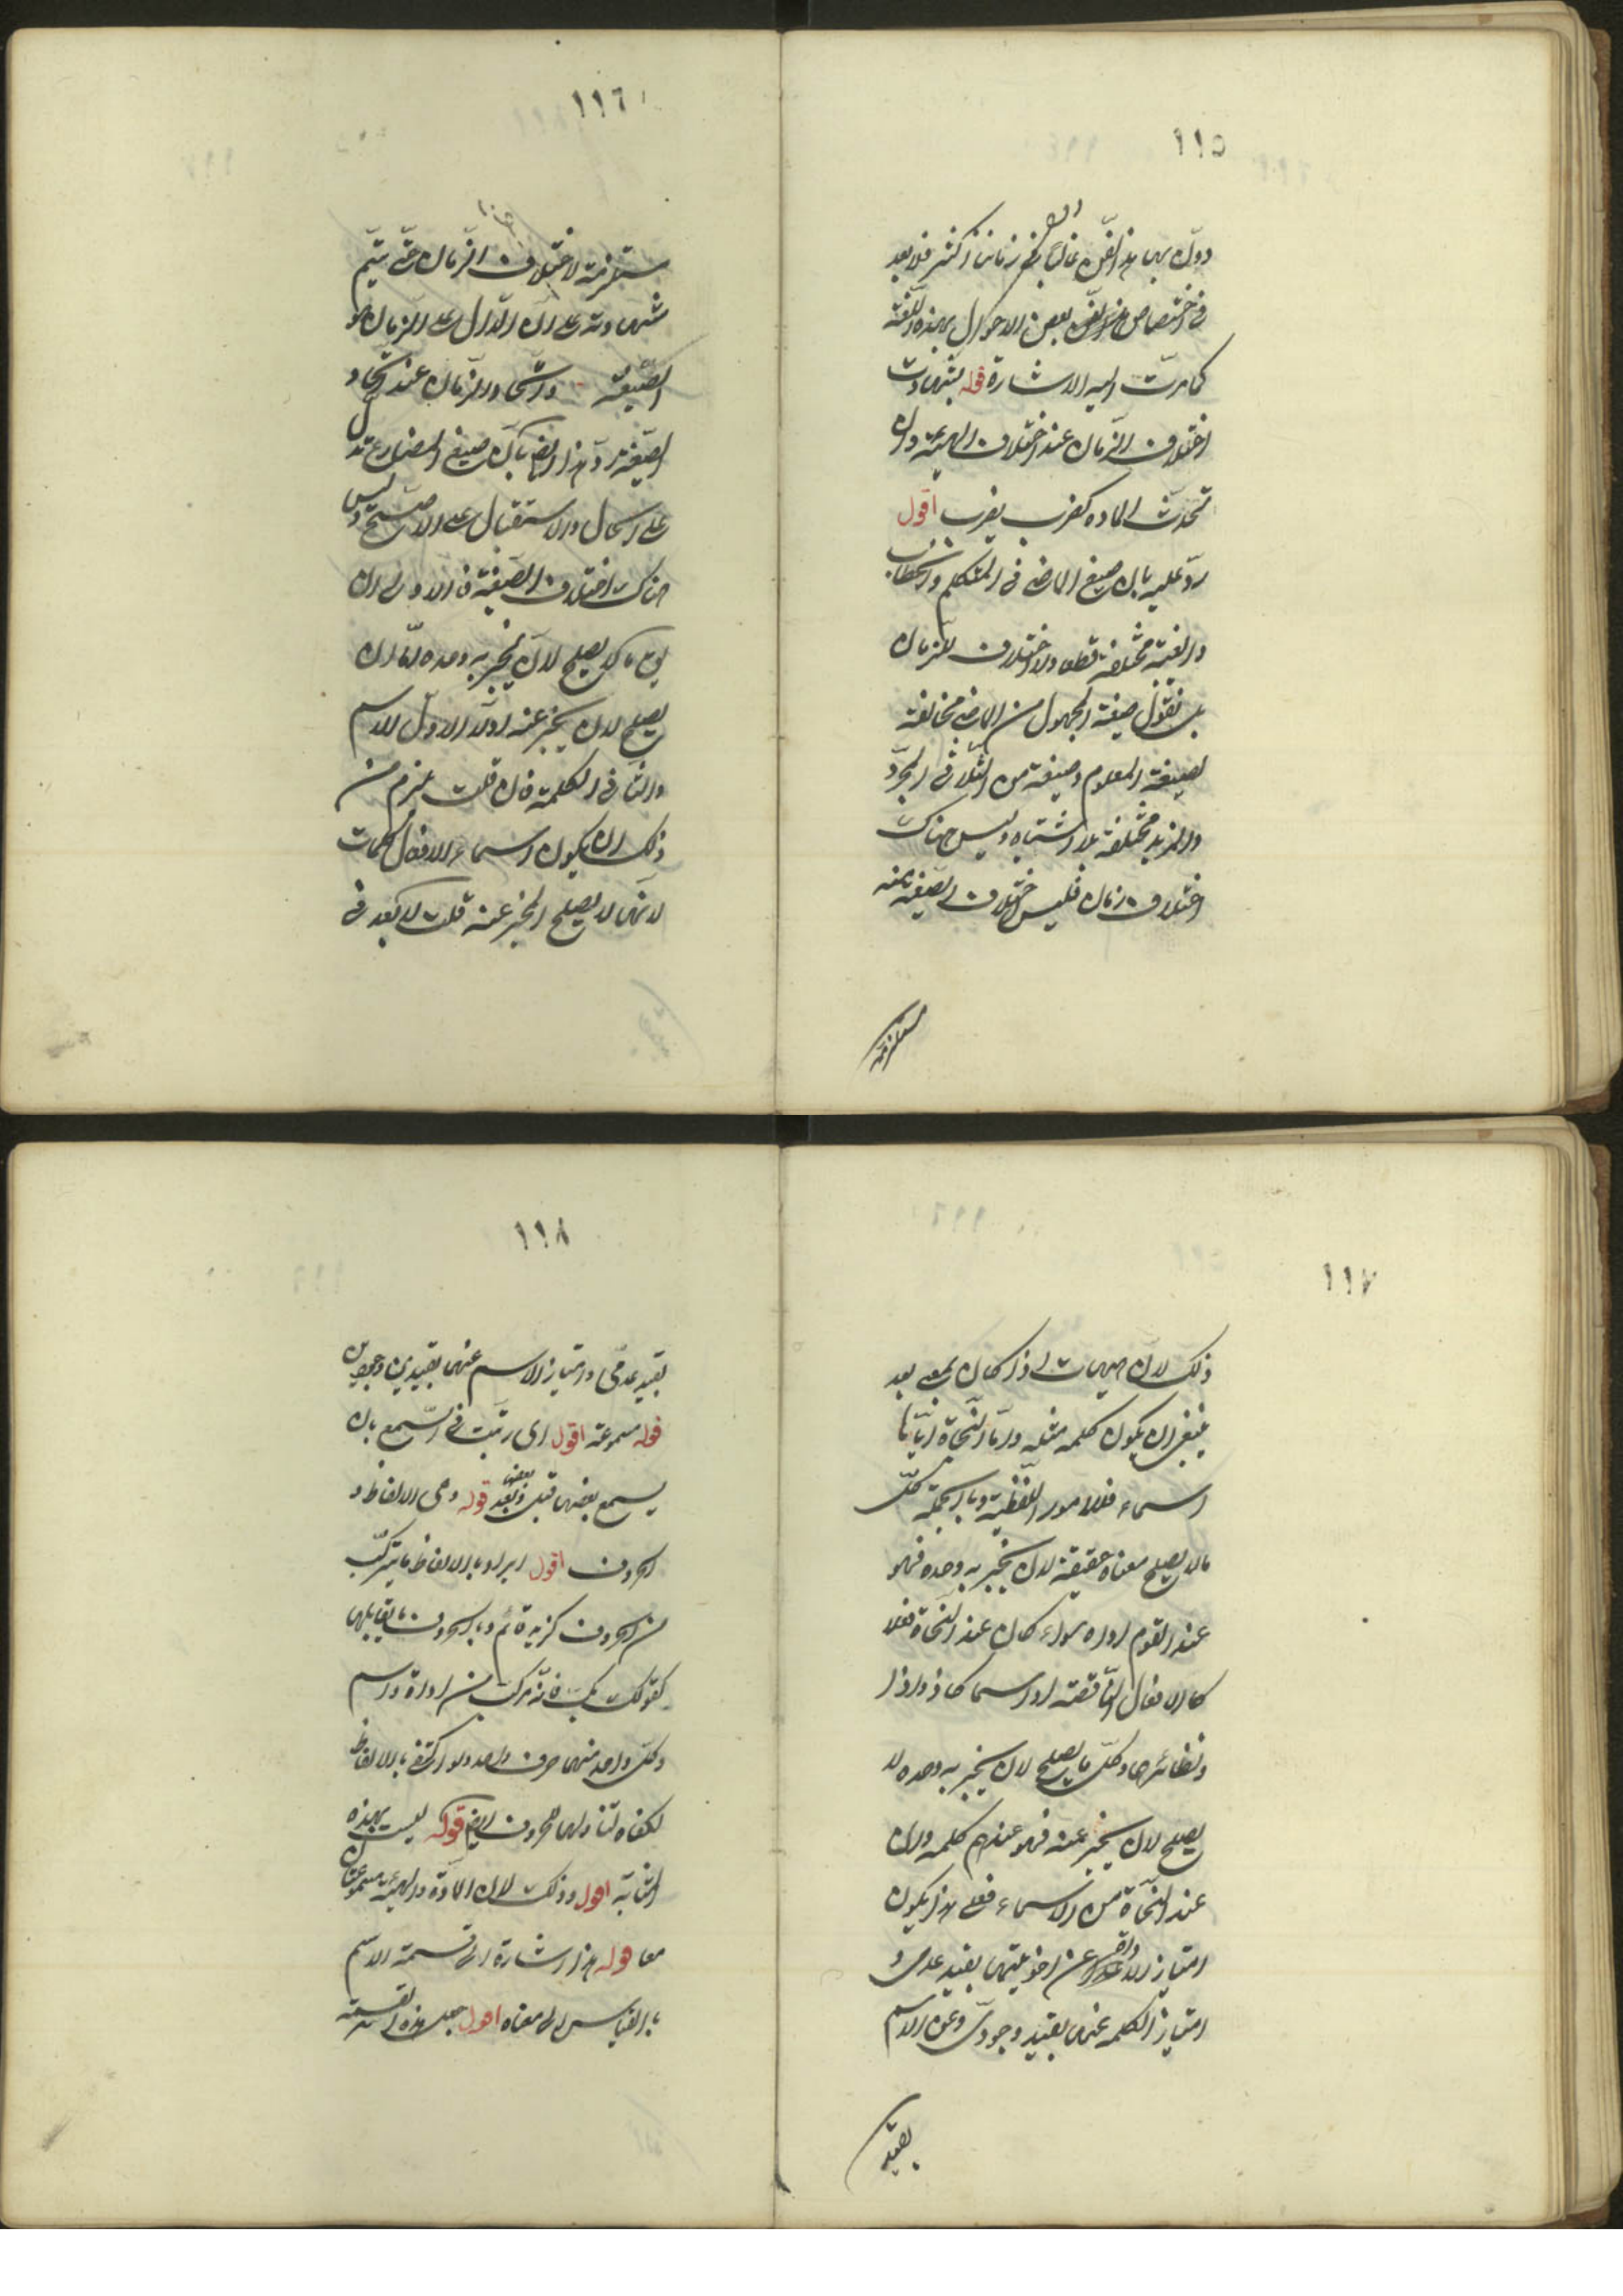 ١١٥
دوّن بها هذا الفنّ غالبا فى زماننا اكثر فلا بعد
فى اختصاص هذا الفنّ ببعض الاحوال بهذه اللّغة
كما مرّت اليه الاشارة قوله بشهادت
اختلاف الزّمان عند اختلاف الهيئة وان
تحدت المادّه كضرب يضرب اقول
ردّ عليه بان صيغ الماضى فى المتكلم والخطاب
والغيبة مختلفة قطعا ولا اختلاف للزمان
بل نقول صيغة المجهول من الماضى مخالفة
لصيغة المعلوم وصيغة من الثّلاثى المجرّد
والمزيد مختلفة بلا اشتباه وليس هناك
اختلاف زمان فليس اختلاف الصّيغة
مستلزمة
١١٦
مستلزمة لاختلاف الزّمان حتّى يتمّ
شهادته على انّ الدّال على الزمان هو
الصّيغة واتّحاد الزّمان عند اتّحاد
الصّيغة ردّ هذا ايضا بانّ صيغ المضارع تدل
على الحال والاستقبال على الاصحّ وليس
هناك اختلاف الصّيغة فالاولى ان
يصلح لان يخبر به وحده امّا ان
يصلح لان يخبر عنه اولا الاوّل الاسم
والثانى الكلمة فان قلت لزم من
ذلك ان يكون اسماء الافعال كلمات
لانّها لا يصلح المخبر عنه قلت لا بعد فى
١١٧
ذلك لانّ هيهات اذا كان بمعنى بعد
ينبغى ان يكون كلمه مثله وامّا النّحاة
اسماء فللامور اللّفظية وبالجملة كلّ
ما لا يصلح معناه حقيقة لان يخبر به وحده فهو
عند القوم اداه سواء كان عند النّحاة فعلا
كالافعال النّاقصة او اسما كاذ واذا
ونظائرها وكلّ ما يصلح لان يخبر به وحده لا
يصلح لان يخبر عنه فهو عندهم كلمه وان
عند النّحاة من الاسماء فعلى هذا يكون
امتياز الاداة عن اخويتها بقيد عدمى و
امتياز الكلمه عنها بقيد وجودىّ وعن الاسم
بقيد
١١٨
بقيد عدمّى وامتياز الاسم عنها بقيدين وجوديين
قوله مسموعة اقول اى رتّبت فى السّمع بان
يسمع بعضها قبل بعضها وبعد قوله وهى الالفاظ و
الحروف اقول اراد بالالفاظ ما يتركّب
من الحروف كزيد قائم وبالحروف ما يقابلها
كقولك بك فانّه مركّب من اداة واسم
وكلّ واحد منهما حرف واحد ولو اكتفى بالالفاظ
لكفاه لتناولها للحروف ايضا قوله ليست بهذه
المثابة اقول وذلك لان المادّة والهيئة مسموعتان
معا قوله هذا اشارة الى قسمة الاسم
بالقياس الى معناه اقول جعل هذه القسمة